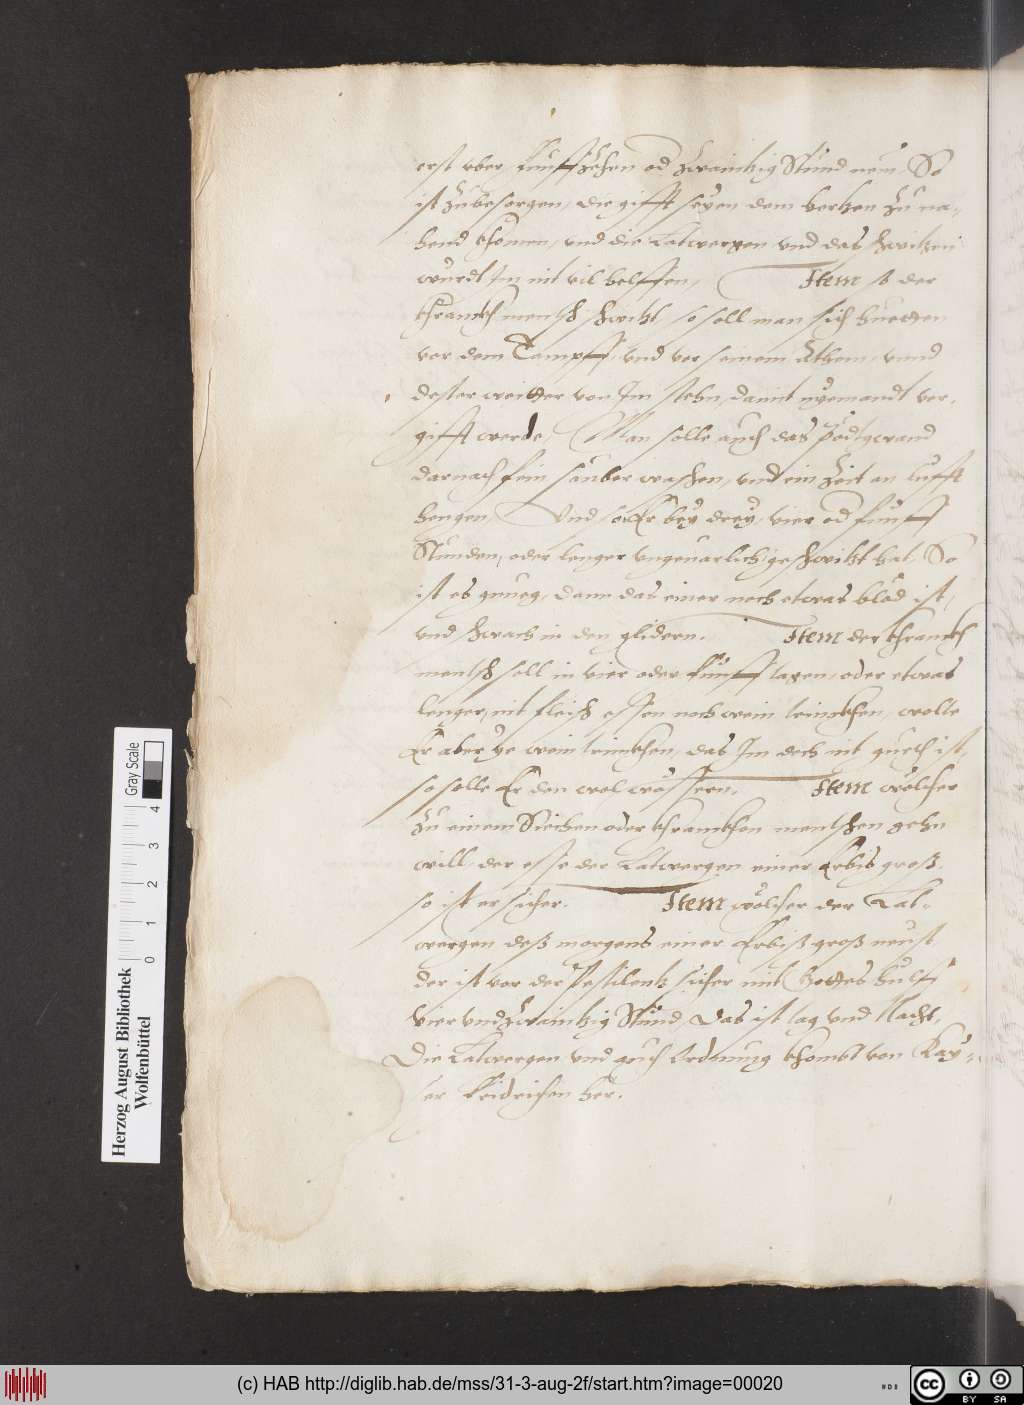 erst vber fünffzehen od zwaintzig Stund nem, So
ist zubesorgen, die gifft seyen dem hertzen zu na-
hend khomen, vnd die Latwergen vnd das schwitzen
wurdt Im nit vil helffen, Item so der
khranckh mensch schwitzt, so soll man sich huetten
vor dem Dampff, vnd vor seinem Athem, vnnd
dester weitter von Im stehn, damit nyemandt ver-
gifft werde, Man solle auch das Pödtgwand
darnach fein sauber waschen, vnd ein Zeit an lufft
hengen, Vnd so Er bey drey, vier od fünff
Stunden, oder lenger vngeuarlich geschwitzt hat, So
ist es genueg, dann das einer noch etwas blöd ist,
vnd schwach in den glidern. Item der khranckh
mensch soll in vier oder fünff tagen, oder etwas
lenger, nit fleisch essen noch wein trinckhen, wolte
Er aber ye wein trinckhen, das Im doch nit guet ist,
so solle Er den wol wässern. Item wölcher
zu einem Siechen oder khranckhen menschen gehn
will, der esse der Latwergen einer Erbis groß,
so ist er sicher. Item wölcher der Lat-
wergen deß morgens einer Erbiß groß neust
der ist vor der Pestilentz sicher mit Gottes hülff
vier vnd zwaintzig Stünd, Das ist tag vnd Nacht,
Die Latwergen vnd auch Ordnung khombt von Kay-
ser Fridrichen her.
Herzog August Bibliothek
Wolfenbüttel
0 1 2 3 4
Gray Scale
(c) HAB http://diglib.hab.de/mss/31-3-aug-2f/start.htm?image=00020
cc BY SA